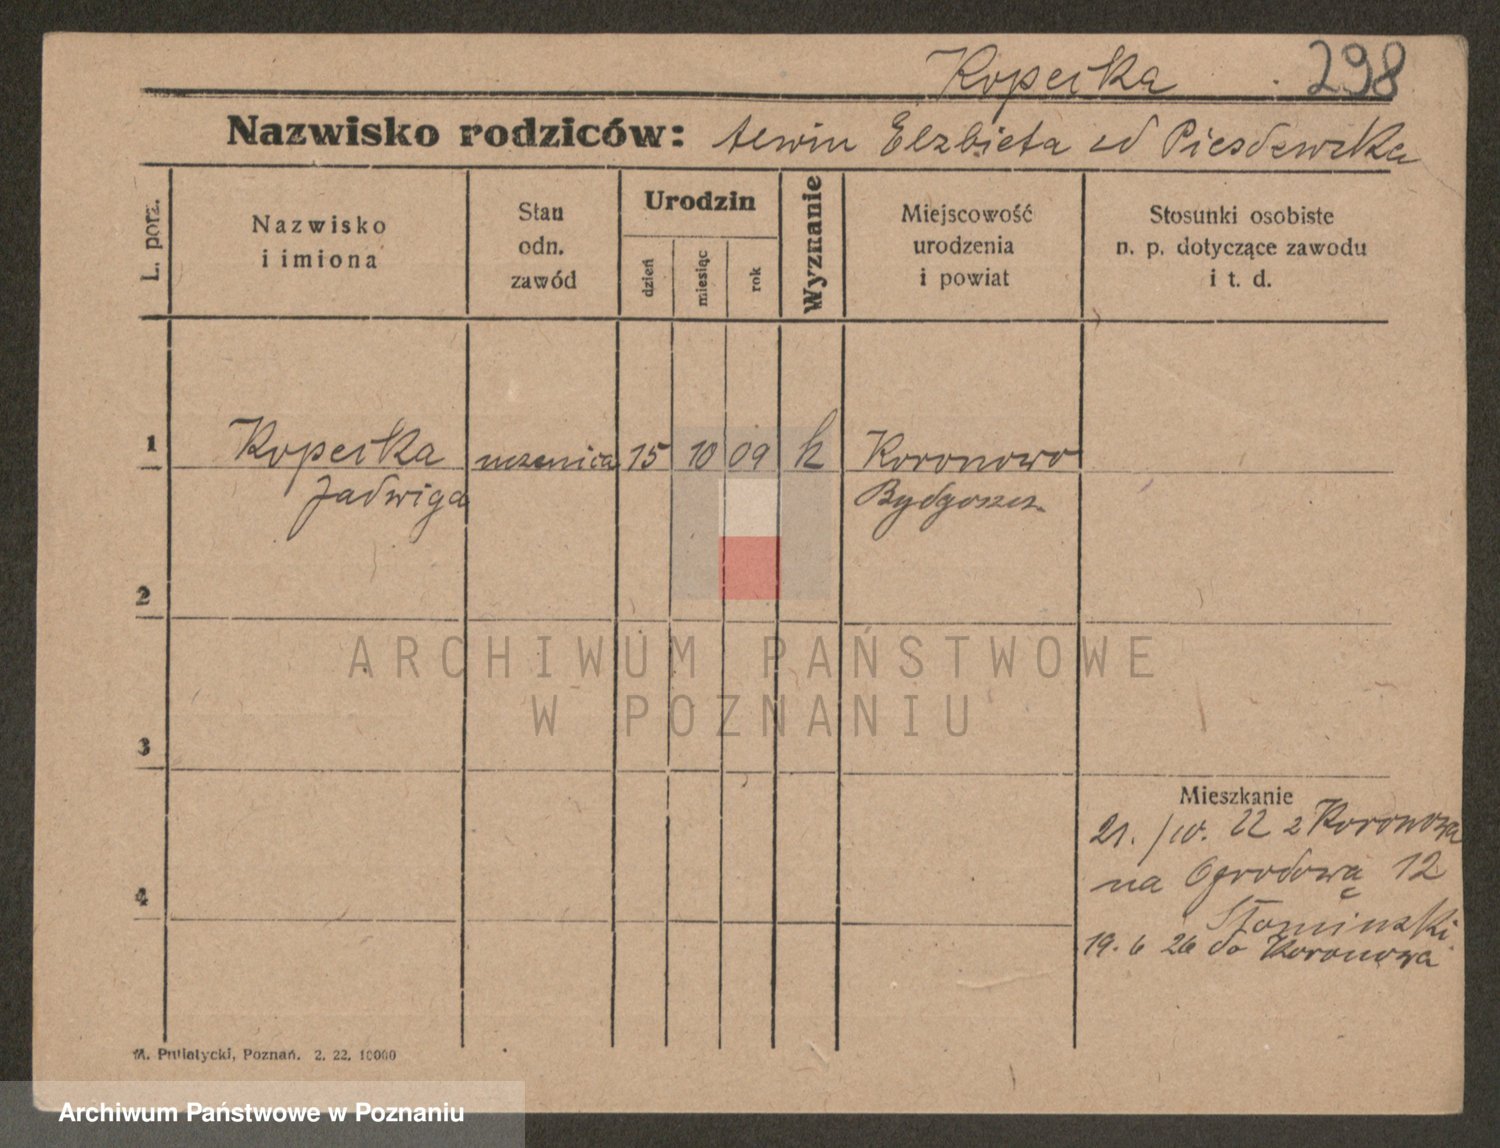 Koperska 298
Nazwisko rodziców: Elzbieta
L. porz.
Nazwisko
i imiona
Stan
odn.
zawód
Urodzin
dzień
miesiąc
rok
Wyznanie
Miejscowość
urodzenia
i powiat
Stosunki osobiste
n. p. dotyczące zawodu
i t. d.
1 Koperska uczenica 15 10 09 k Koronowo
Jadwiga Bydgoszcz.
2
3
4
ARCHIWUM PAŃSTWOWE
W POZNANIU
Mieszkanie
21. /10. 22 z Koronowa
na Ogrodową 12
Słomiński
19. 6 26 do Koronowa
M. Putiatycki, Poznań. 2. 22. 10000
Archiwum Państwowe w Poznaniu